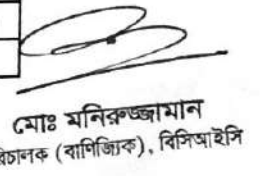 মোঃ মনিরুজ্জামান
(বাণিজ্যিক), বিসিআইসি